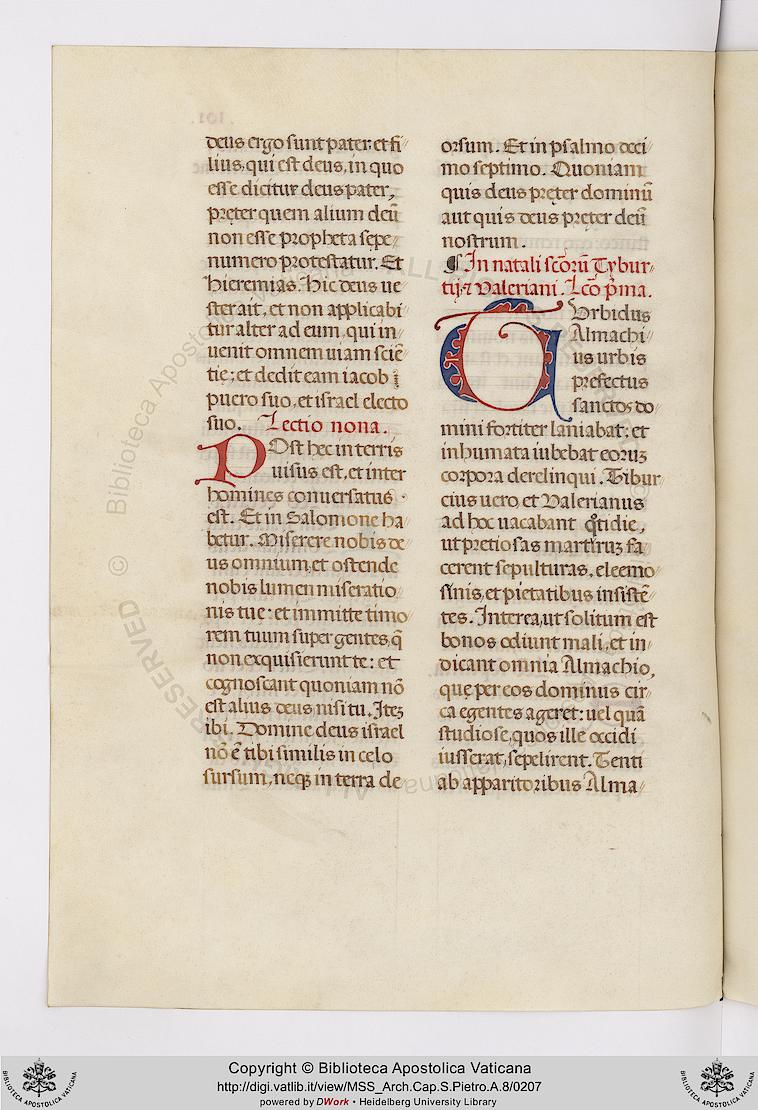 deus ergo sunt pater: et fi
lius, qui est deus, in quo
esse dicitur deus pater,
pręter quem alium deū
non esse propheta sępe
numero protestatur. Et
hieremias. Hic deus ue
ster ait, et non applicabi
tur alter ad eum, qui in
uenit omnem uiam sciē
tię; et dedit eam iacob
puero suo, et israel electo
suo. Lectio nona.
POst hec in terris
uisus est, et inter
homines conuersatus
est. Et in Salomone ha
betur. Miserere nobis de
us omnium, et ostende
nobis lumen miseratio
nis tuę: et immitte timo
rem tuum super gentes, q̄
non exquisierunt te: et
cognoscant quoniam nō
est alius deus nisi tu. Iteꝫ
ibi. Domine deus israel
nō ē tibi similis in celo
sursum, neqꝫ in terra de
orsum. Et in psalmo deci
mo septimo. Quoniam
quis deus pręter dominū
aut quis deus pręter deū
nostrum.
¶ In natali scōrū Tybur
tij, ⁊ Valeriani. Lcō p̄ma.
TUrbidus
Almachi
us urbis
prefectus
sanctos do
mini fortiter laniabat: et
inhumata iubebat eoruꝫ
corpora derelinqui. Tibur
cius uero et Valerianus
ad hoc uacabant q̄tidie,
ut pretiosas martiruꝫ fa
cerent sepulturas, eleemo
sinis, et pietatibus insistē
tes. Interea, ut solitum est
bonos odiunt mali, et in
dicant omnia Almachio,
quę per eos dominus cir
ca egentes ageret: uel quā
studiose, quos ille occidi
iusserat, sepelirent. Tenti
ab apparitoribus Alma
Copyright © Biblioteca Apostolica Vaticana
http://digi.vatlib.it/view/MSS_Arch.Cap.S.Pietro.A.8/0207
powered by DWork • Heidelberg University Library
BIBLIOTECA APOSTOLICA VATICANA
BIBLIOTECA APOSTOLICA VATICANA